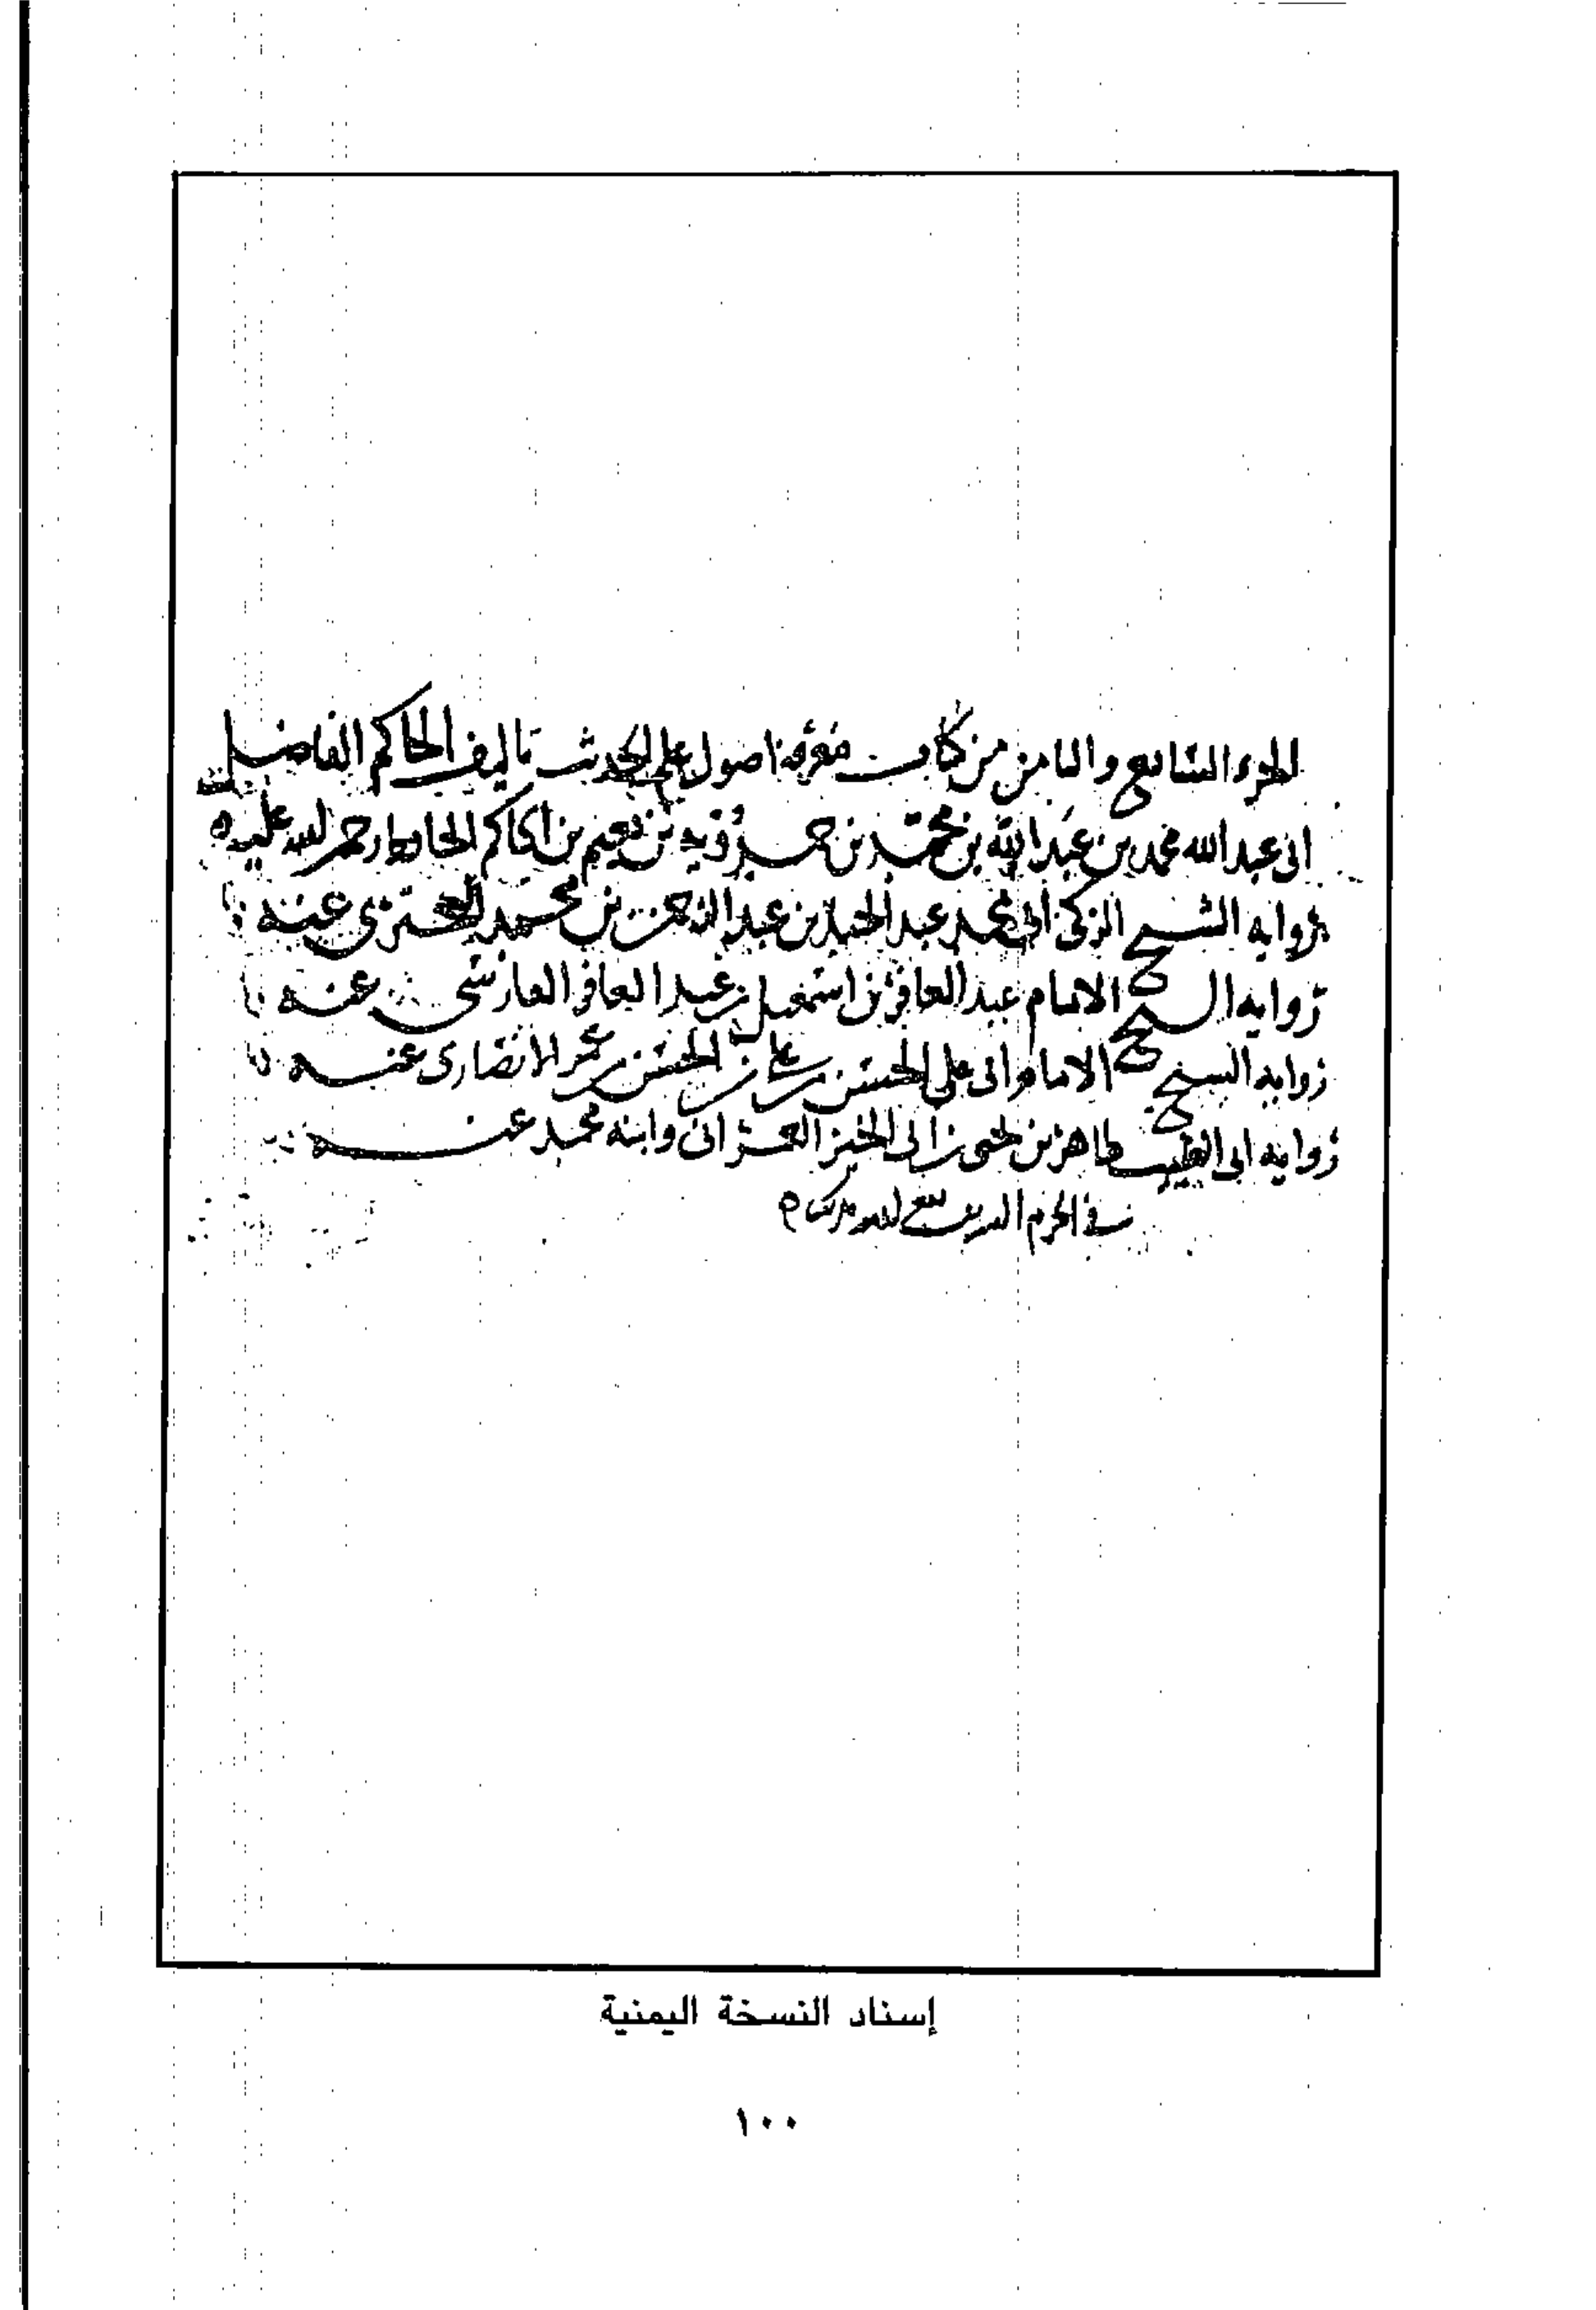 الجزء السابع والثامن من كتاب معرفة اصول علم الحديث تاليف الحاكم الفاضل
ابى عبد الله محمد بن عبد الله بن محمد بن حمدويه بن نعيم بن الحاكم الحافظ رحمه الله عليه
رواية الشيخ الزكى ابى محمد عبد الحميد بن عبد الرحمن بن محمد البحترى عنه
رواية الشيخ الامام عبد الغافر بن اسمعيل بن عبد الغافر الفارسى عنه
رواية الشيخ الامام ابى على الحسن بن على بن الحسن بن عمر الانصارى عنه
رواية ابى الطيب طاهر بن يحيى بن ابى الخير العمرانى وابنه محمد عنه
فى الحرم الشريف
إسناد النسخة اليمنية
١٠٠